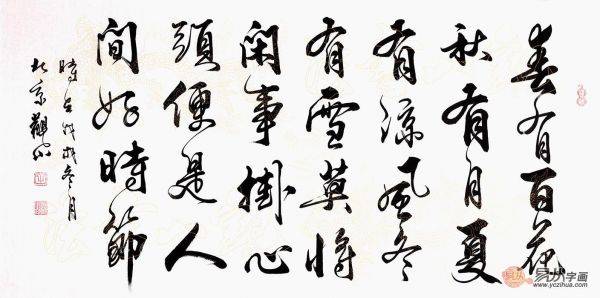 春有百花
秋有月夏
有涼風冬
有雪莫將
閑事掛心
頭便是人
間好時節
時在戊戌冬月
北京
易从字画
www.yczihua.com